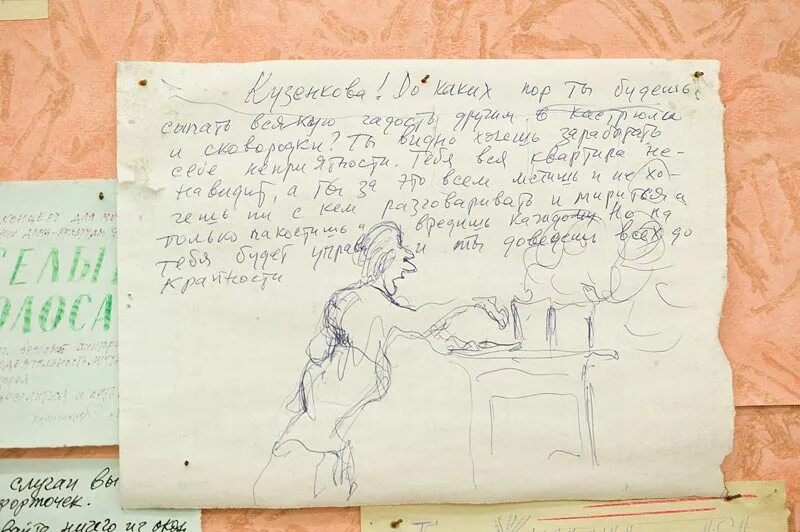 Кузенкова! До каких пор ты будешь
сыпать всякую гадость другим в кастрюли
и сковородки? Ты видно хочешь заработать
себе неприятности. Тебя вся квартира не-
навидит, а ты за это всем мстишь и не хо-
чешь ни с кем разговаривать и мириться а
только пакостишь и вредишь каждому Но на
тебя будет управа и ты доведешь всех до
крайности
концерт для
СЕЛЫ
ОЛОСА
случаи вы
форточек.
ничего из окон